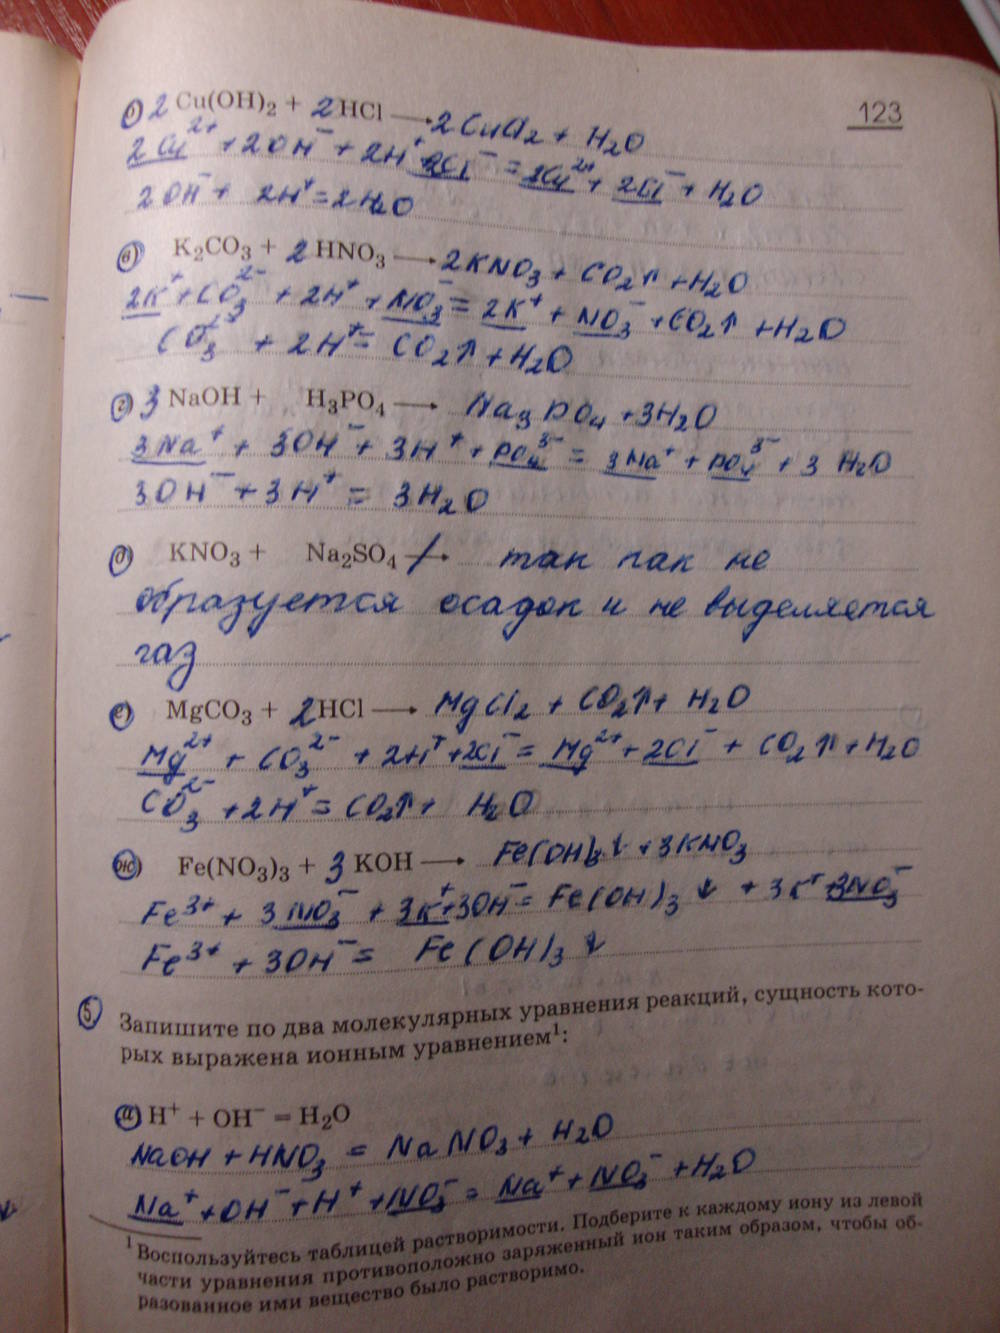 123
б) 2 Cu(OH)₂ + 2 HCl ⟶ 2CuCl₂ + H₂O
2Cu²⁺ + 2OH⁻ + 2H⁺ 2Cl⁻ = 2Cu²⁺ + 2Cl⁻ + H₂O
2OH⁻ + 2H⁺ = 2H₂O
в) K₂CO₃ + 2 HNO₃ ⟶ 2KNO₃ + CO₂↑ + H₂O
2K⁺ + CO₃²⁻ + 2H⁺ + NO₃⁻ = 2K⁺ + NO₃⁻ + CO₂↑ + H₂O
CO₃²⁻ + 2H⁺ = CO₂↑ + H₂O
г) 3 NaOH + H₃PO₄ ⟶ Na₃PO₄ + 3H₂O
3Na⁺ + 3OH⁻ + 3H⁺ + PO₄³⁻ = 3Na⁺ + PO₄³⁻ + 3 H₂O
3OH⁻ + 3H⁺ = 3H₂O
д) KNO₃ + Na₂SO₄ ⟶ так как не
образуется осадок и не выделяется
газ
е) MgCO₃ + 2HCl ⟶ MgCl₂ + CO₂↑ + H₂O
Mg²⁺ + CO₃²⁻ + 2H⁺ + 2Cl⁻ = Mg²⁺ + 2Cl⁻ + CO₂↑ + H₂O
CO₃²⁻ + 2H⁺ = CO₂↑ + H₂O
ж) Fe(NO₃)₃ + 3 KOH ⟶ Fe(OH)₃↓ + 3KNO₃
Fe³⁺ + 3NO₃⁻ + 3K⁺ + 3OH⁻ = Fe(OH)₃↓ + 3K⁺ 3NO₃⁻
Fe³⁺ + 3OH⁻ = Fe(OH)₃↓
5. Запишите по два молекулярных уравнения реакций, сущность кото-
рых выражена ионным уравнением¹:
а) H⁺ + OH⁻ = H₂O
NaOH + HNO₃ = NaNO₃ + H₂O
Na⁺ + OH⁻ + H⁺ + NO₃⁻ = Na⁺ + NO₃⁻ + H₂O
¹ Воспользуйтесь таблицей растворимости. Подберите к каждому иону из левой
части уравнения противоположно заряженный ион таким образом, чтобы об-
разованное ими вещество было растворимо.